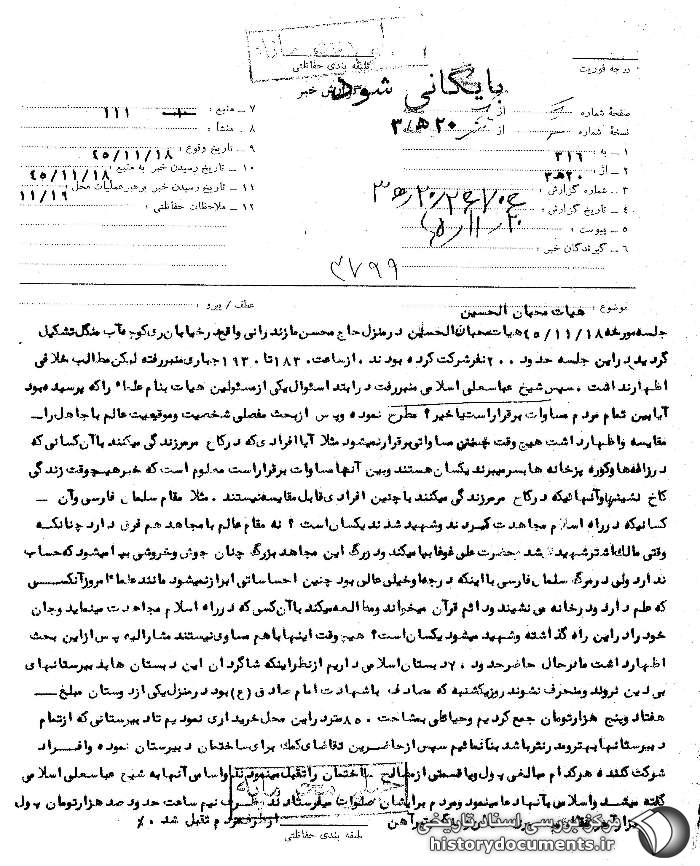 طبقه بندی حفاظتی
درجه فوریت
بایگانی شود
گزارش خبر
صفحهٔ شماره : از
نسخهٔ شماره : از
۲۰ ه‍ ۳
۱ ــ به : ۳۱۶
۲ ــ از : ۲۰ ه‍ ۳
۳ ــ شماره گزارش :
۴ ــ تاریخ گزارش :
۵ ــ پیوست :
۶ ــ گیرندگان خبر :
۷ ــ منبع : ۱۱۱
۸ ــ منشأ :
۹ ــ تاریخ وقوع : ۴۵/۱۱/۱۸
۱۰ ــ تاریخ رسیدن خبر به منبع : ۴۵/۱۱/۱۸
۱۱ ــ تاریخ رسیدن خبر برهبر عملیات محل : ۱۱/۱۹
۱۲ ــ ملاحظات حفاظتی :
۳۷۹۹
موضوع : هیات محبان الحسین
عطف / پیرو :
جلسه مورخه ۴۵/۱۱/۱۸ هیات محبان الحسین در منزل حاج محسن مازندرانی واقع در خیابان ری کوچه آب منگل تشکیل
گردید در این جلسه حدود ۲۰۰ نفر شرکت کرده بودند . از ساعت ۱۸۳۰ تا ۱۹۳۰ جباری منبر رفته لیکن مطالب خلافی
اظهار نداشت . سپس شیخ عباسعلی اسلامی منبر رفت در ابتدا سئوال یکی از مسئولین هیات بنام علاء را که پرسیده بود
آیا بین تمام مردم مساوات برقرار است یا خیر ؟ مطرح نموده و پس از بحث مفصلی شخصیت و موقعیت عالم با جاهل را ــ
مقایسه و اظهار داشت هیچوقت چنین مساواتی برقرار نمیشود مثلا آیا افرادی که در کاخ مرمر زندگی میکنند با آن کسانی که
در زاغه‌ها و کوره پزخانه ها بسر میبرند یکسان هستند و بین آنها مساوات برقرار است معلوم است که خیر هیچوقت زندگی
کاخ نشینها و آنهائیکه در کاخ مرمر زندگی میکنند با چنین افرادی قابل مقایسه نیستند . مثلا مقام سلمان فارسی و آن ــ
کسانیکه در راه اسلام مجاهدت کردند و شهید شدند یکسان است ؟ نه مقام عالم با مجاهد هم فرق دارد چنانکه
وقتی مالک اشتر شهید شد حضرت علی غوغا بپا میکند و در مرگ این مجاهد بزرگ چنان جوش و خروشی بپا میشود که حساب
ندارد ولی در مرگ سلمان فارسی با اینکه درجه‌اوخیلی عالی بود چنین احساساتی ابراز نمیشود مانند علماء امروز آنکســی
که علم دارد و در خانه می نشیند و دائم قرآن میخواند و مطالعه میکند با آن کسی که در راه اسلام مجاهدت مینماید و جان
خود را در این راه گذاشته و شهید میشود یکسان است ؟ هیچوقت اینها با هم مساوی نیستند مشارالیه پس از این بحث
اظهار داشت ما در حال حاضر حدود دبستان اسلامی داریم از نظر اینکه شاگردان این دبستان ها به دبیرستانهای
بی دین نروند و منحرف نشوند روز یکشنبه که مصادف با شهادت امام صادق (ع) بود در منزل یکی از دوستان مبلغ ــ
هفتاد و پنج هزار تومان جمع کردیم و حیاطی بمساحت ۸۵۰ متر در این محل خریداری نمودیم تا دبیرستانی که از تمام
دبیرستانها بهتر و مدرن‌تر باشد بنا نمائیم سپس از حاضرین تقاضای کمک برای ساختمان دبیرستان نموده و افــراد
شرکت کننده هر کدام مبالغی پول و یا قسمتی از مصالح ساختمان را تقبل مینمودند و اسامی آنها به شیخ عباسعلی اسلامی
گفته میشد و اسلامی بآنها دعا مینمود و مردم برایشان صلوات میفرستادند ظرف نیم ساعت حدود صد هزار تومان پول
آهن از طرف مردم تقبل شد . ٪
طبقه بندی حفاظتی
مرکز بررسی اسناد تاریخی
historydocuments.ir